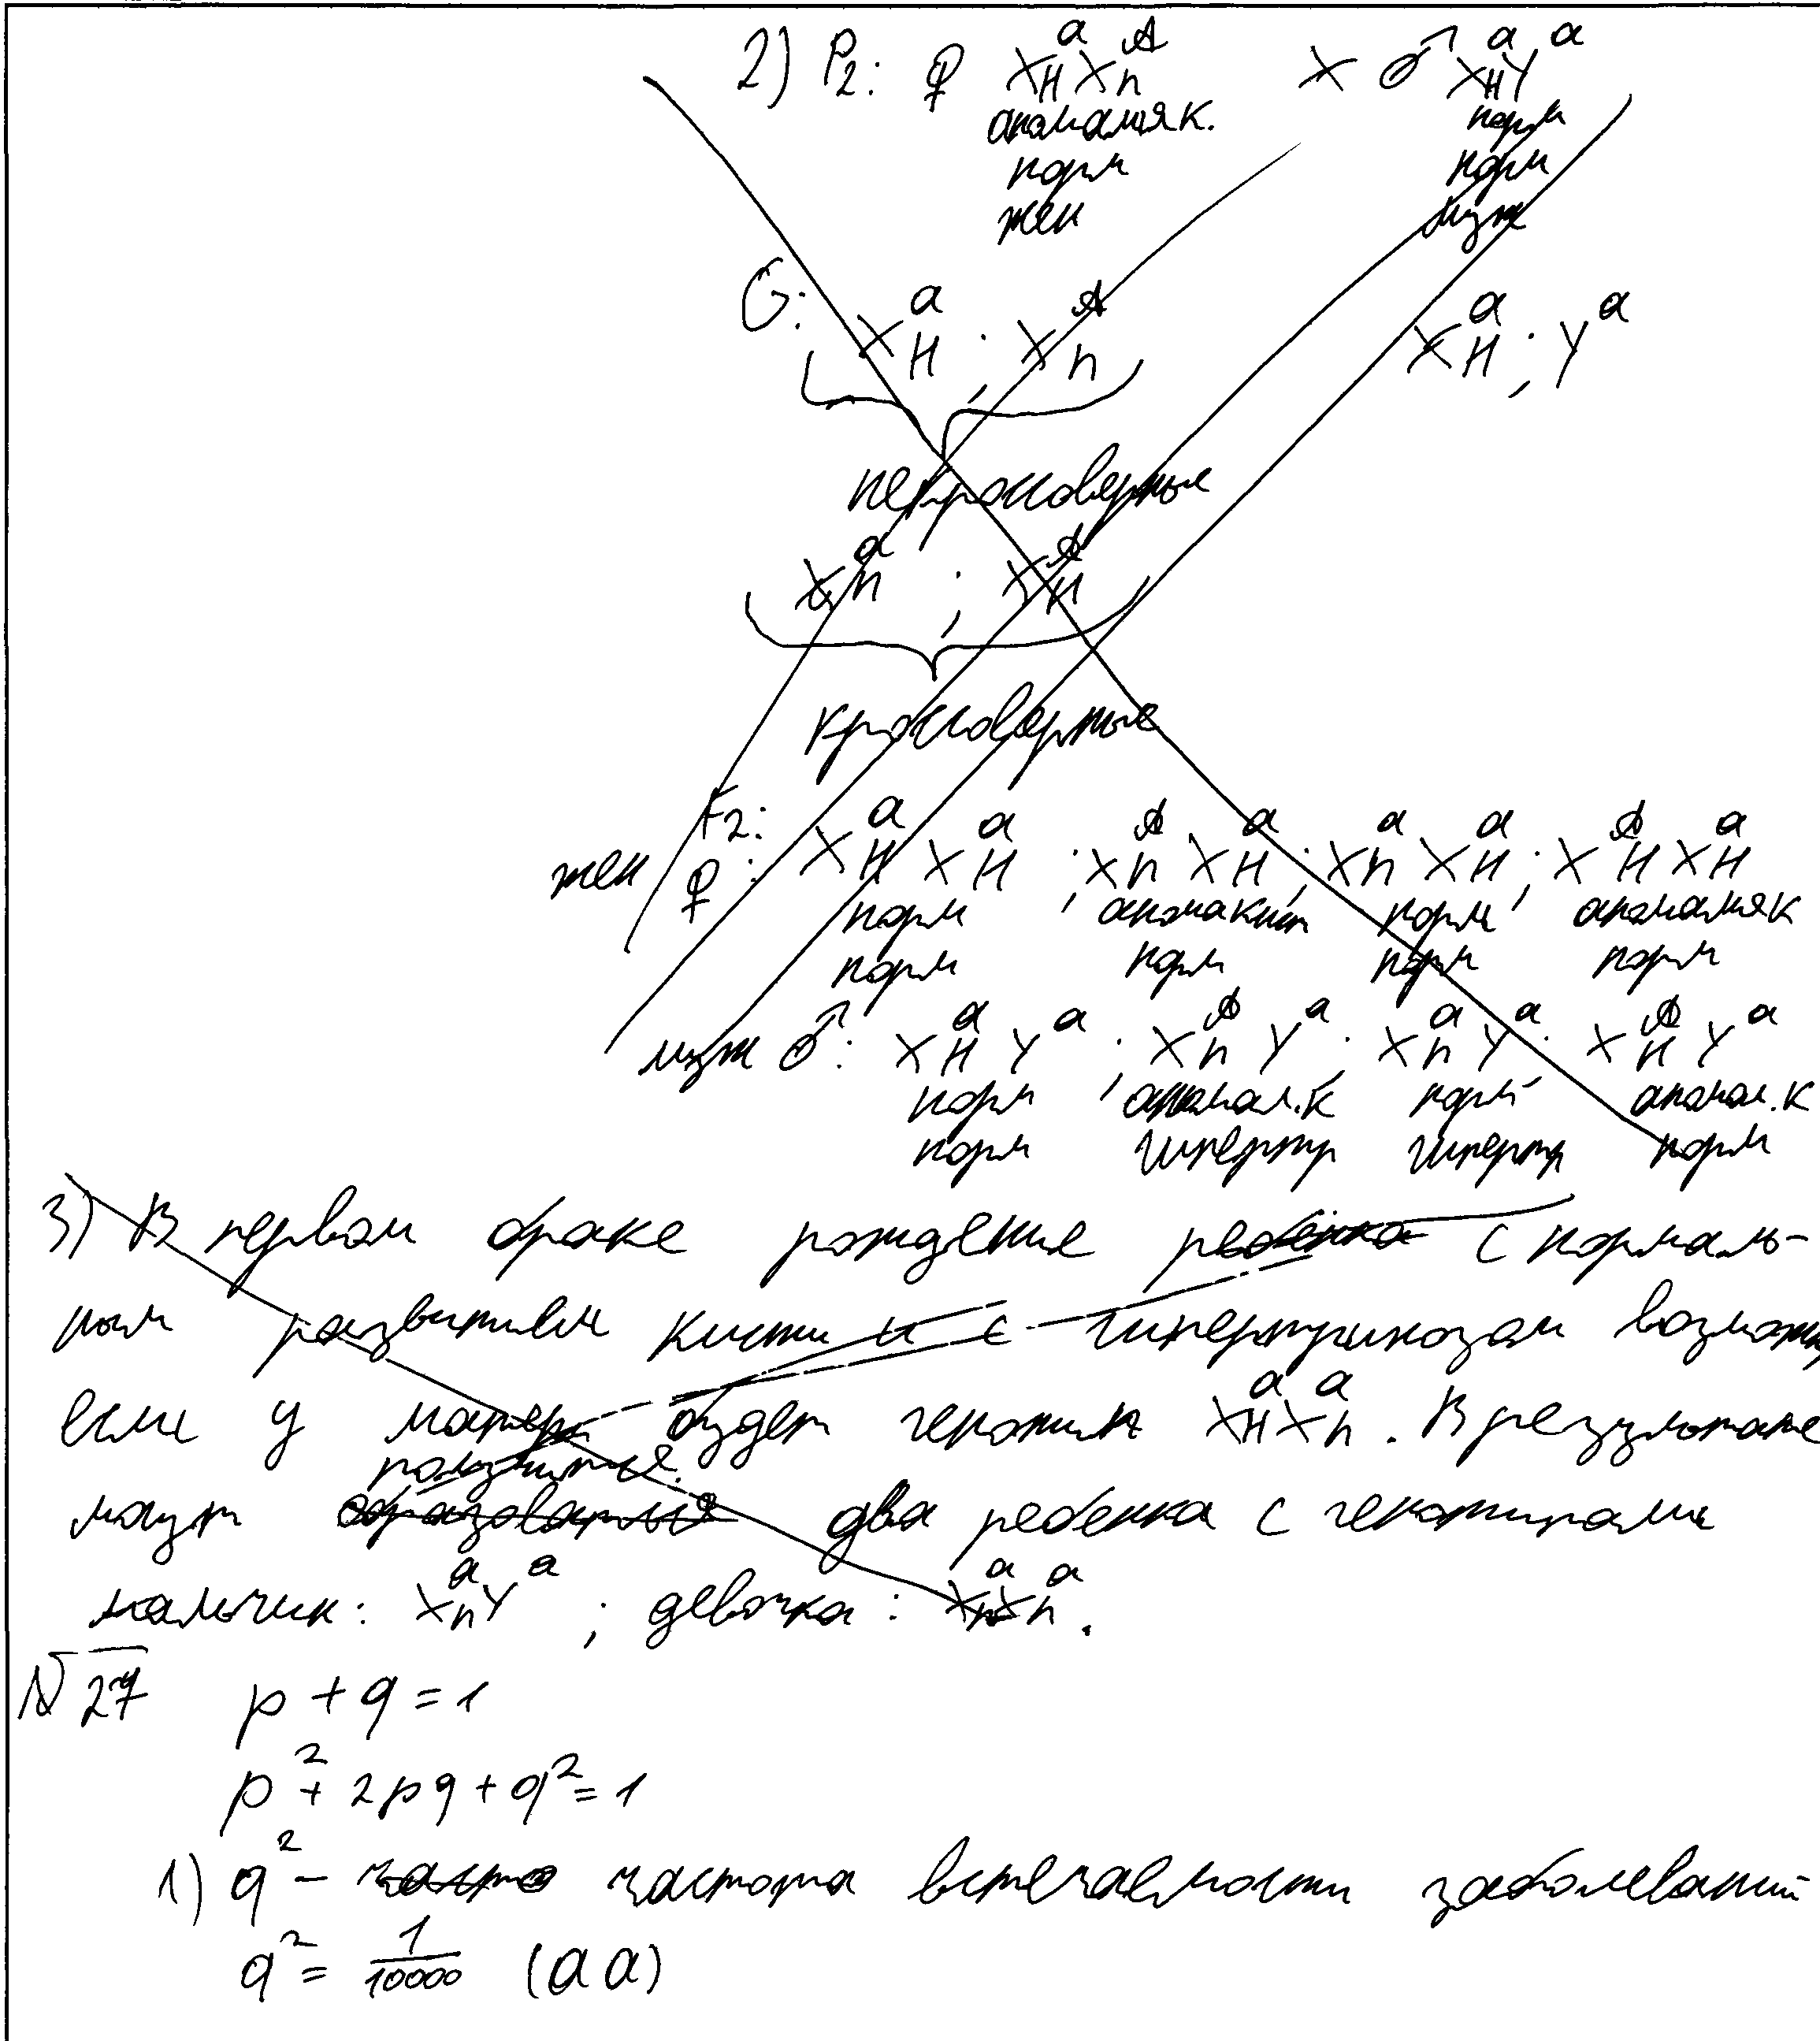 2) P₂: ♀ XᵃH Xᴬh × ♂ XᵃH Yᵃ
аномалия к. норм
норм норм
жен муж
G: XᵃH ; Xᴬh XᵃH ; Yᵃ
некроссоверные
Xᵃh ; XᴬH
кроссоверные
F₂:
жен ♀: XᵃH XᵃH ; Xᴬh XᵃH ; Xᵃh XᵃH ; XᴬH XᵃH
норм аномакист норм аномалияк
норм норм норм норм
муж ♂: XᵃH Yᵃ ; Xᴬh Yᵃ ; Xᵃh Yᵃ ; XᴬH Yᵃ
норм аномал.к норм аномал.к
норм гипертр гипертр норм
3) В первом браке рождение ребёнка с нормаль-
ным развитием кисти и с гипертрихозом возможно,
если у матери будет генотип XᵃH Xᵃh. В результате
получиться
могут образоваться два ребенка с генотипами
мальчик: Xᵃh Yᵃ ; девочка: Xᵃh Xᵃh.
№ 27 p + q = 1
p² + 2pq + q² = 1
1) q² – часто частота встречаемости заболеваний
q² = 1/10000 (aa)